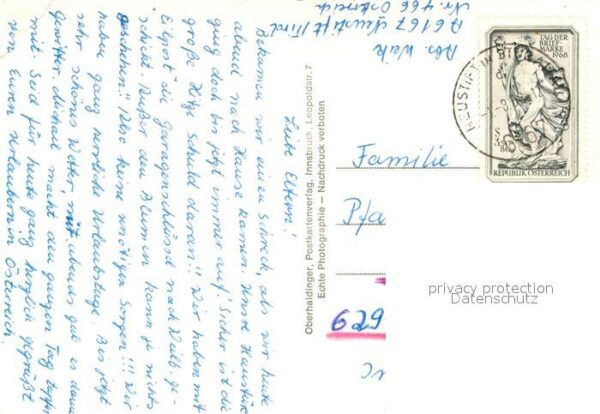 Abs. Wak
A 6167 Neustift/Tirol
Nr. 466 Österreich
Liebe Eltern!
Bekamen wir einen Schreck, als wir heute
abend nach Hause kamen. Unsre Haustür
ging doch bis jetzt immer auf! Sicher ist die
große Hitze Schuld daran!! Wir haben mit
Eilpost die Garagenschlüssel nach Waldb. ge-
schickt. Außer den Blumen kann ja nichts
geschehen!! Also keine unnötigen Sorgen!!! Wir
haben ganz herrliche Urlaubstage. Bis jetzt
sehr schönes Wetter, mit abendes gab es dann
Gewitter. macht den ganzen Tag
mit. Seid für heute ganz herzlich gegrüßt
von Euren Urlaubern in Österreich.
Oberhaidinger, Postkartenverlag, Innsbruck, Leopoldstr. 7
Echte Photographie – Nachdruck verboten
TAG DER
BRIEF-
MARKE
1968
REPUBLIK ÖSTERREICH
NEUSTIFT IM
Familie
Pfa
629
privacy protection
Datenschutz